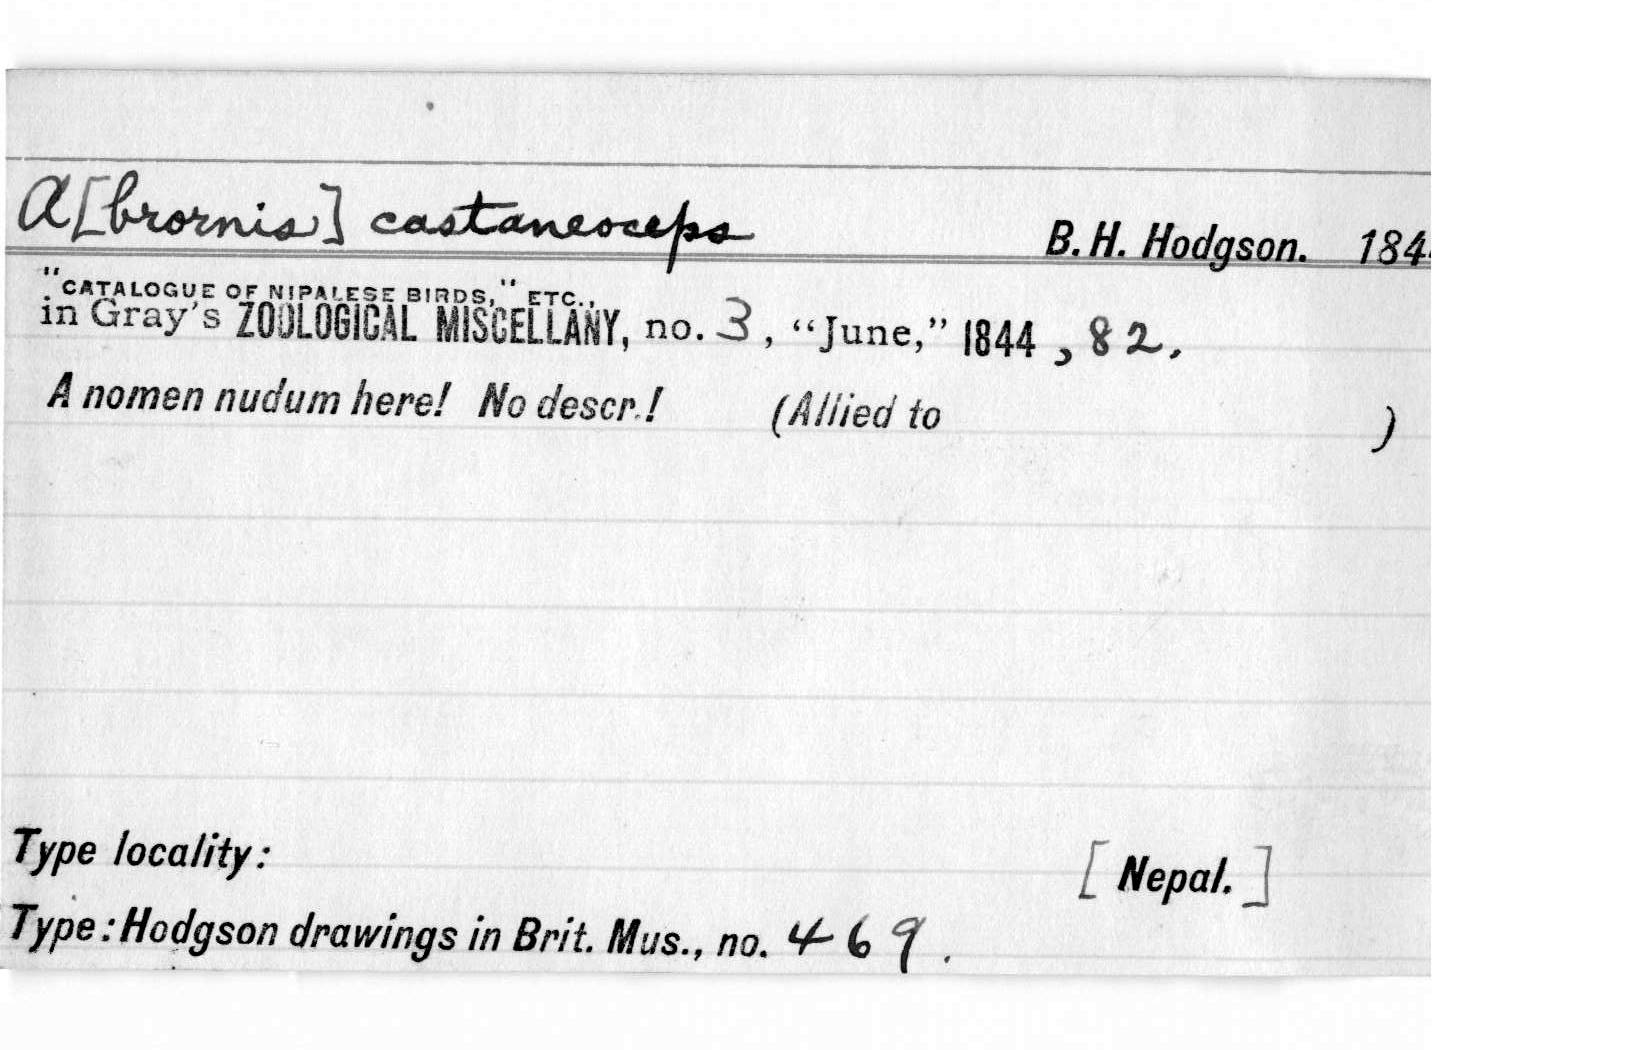 A[brornis] castaneoceps B. H. Hodgson. 184
"CATALOGUE OF NIPALESE BIRDS," ETC.,
in Gray's ZOOLOGICAL MISCELLANY, no. 3, “June,” 1844, 82.
A nomen nudum here! No descr.! (Allied to )
Type locality: [Nepal.]
Type: Hodgson drawings in Brit. Mus., no. 469.